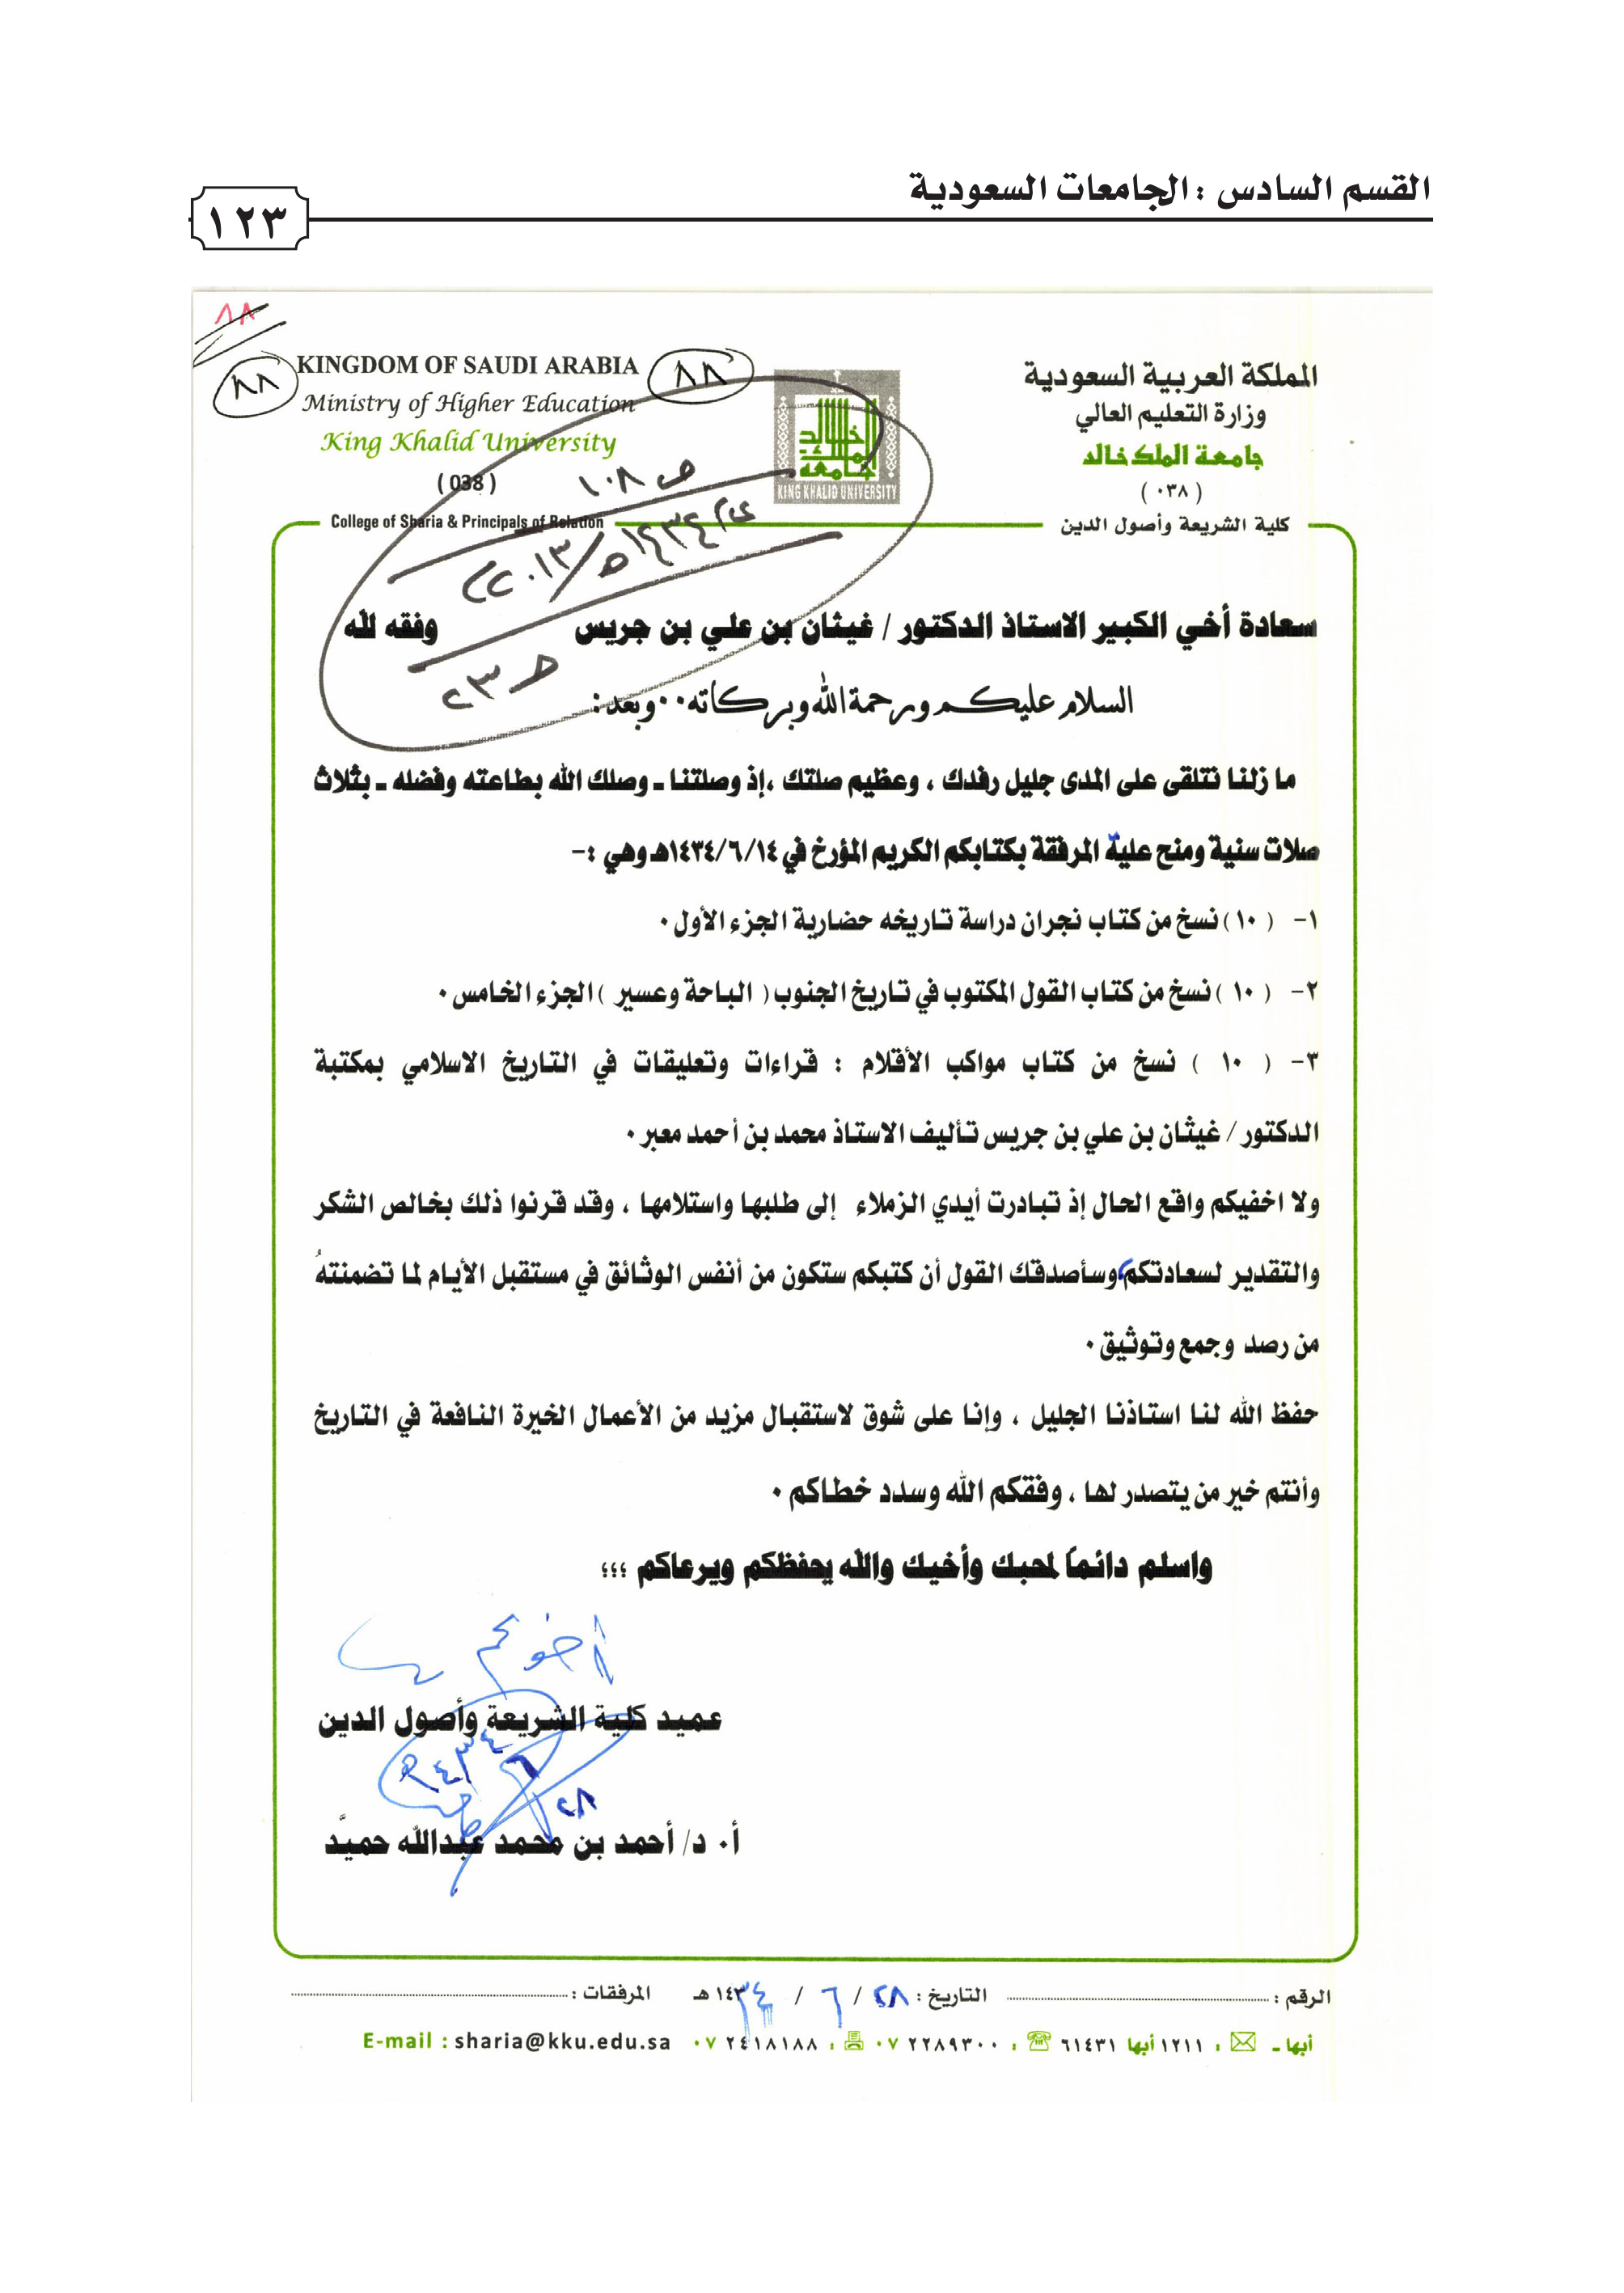 القسم السادس : الجامعات السعودية
١٢٣
٨٨
٨٨
٨٨
KINGDOM OF SAUDI ARABIA
Ministry of Higher Education
King Khalid University
( 038 )
College of Sharia & Principals of Relation
KING KHALID UNIVERSITY
المملكة العربية السعودية
وزارة التعليم العالي
جامعة الملك خالد
( ٠٣٨ )
كلية الشريعة وأصول الدين
ص ١٠٨
١٤٣٤هـ/٢٠١٣م
سعادة أخي الكبير الاستاذ الدكتور / غيثان بن علي بن جريس وفقه لله
السلام عليكم ورحمة الله وبركاته ٠٠ وبعد :
ما زلنا نتلقى على المدى جليل رفدك ، وعظيم صلتك ،إذ وصلتنا ـ وصلك الله بطاعته وفضله ـ بثلاث
صلات سنية ومنح علية المرفقة بكتابكم الكريم المؤرخ في ١٤٣٤/٦/١٤هـ وهي :-
١- ( ١٠ ) نسخ من كتاب نجران دراسة تاريخه حضارية الجزء الأول ٠
٢- ( ١٠ ) نسخ من كتاب القول المكتوب في تاريخ الجنوب ( الباحة وعسير ) الجزء الخامس ٠
٣- ( ١٠ ) نسخ من كتاب مواكب الأقلام : قراءات وتعليقات في التاريخ الاسلامي بمكتبة
الدكتور / غيثان بن علي بن جريس تأليف الاستاذ محمد بن أحمد معبر ٠
ولا اخفيكم واقع الحال إذ تبادرت أيدي الزملاء إلى طلبها واستلامها ، وقد قرنوا ذلك بخالص الشكر
والتقدير لسعادتكم، وسأصدقك القول أن كتبكم ستكون من أنفس الوثائق في مستقبل الأيام لما تضمنتهُ
من رصد وجمع وتوثيق ٠
حفظ الله لنا استاذنا الجليل ، وإنا على شوق لاستقبال مزيد من الأعمال الخيرة النافعة في التاريخ
وأنتم خير من يتصدر لها ، وفقكم الله وسدد خطاكم ٠
واسلم دائماً لمحبك وأخيك والله يحفظكم ويرعاكم ؛؛؛
أخوكم
عميد كلية الشريعة وأصول الدين
٢٨/٦/١٤٣٤هـ
أ٠ د/ أحمد بن محمد عبدالله حميّد
الرقم : التاريخ : ٢٨ / ٦ / ١٤٣٤ هـ المرفقات :
أبها ـ : ١٢١١ أبها ٦١٤٣١ : ٠٧ ٢٢٨٩٣٠٠ : ٠٧ ٢٤١٨١٨٨ E-mail : sharia@kku.edu.sa